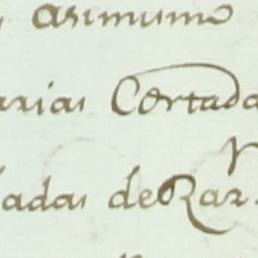 asimumo
arias Cortada
adas de Rar